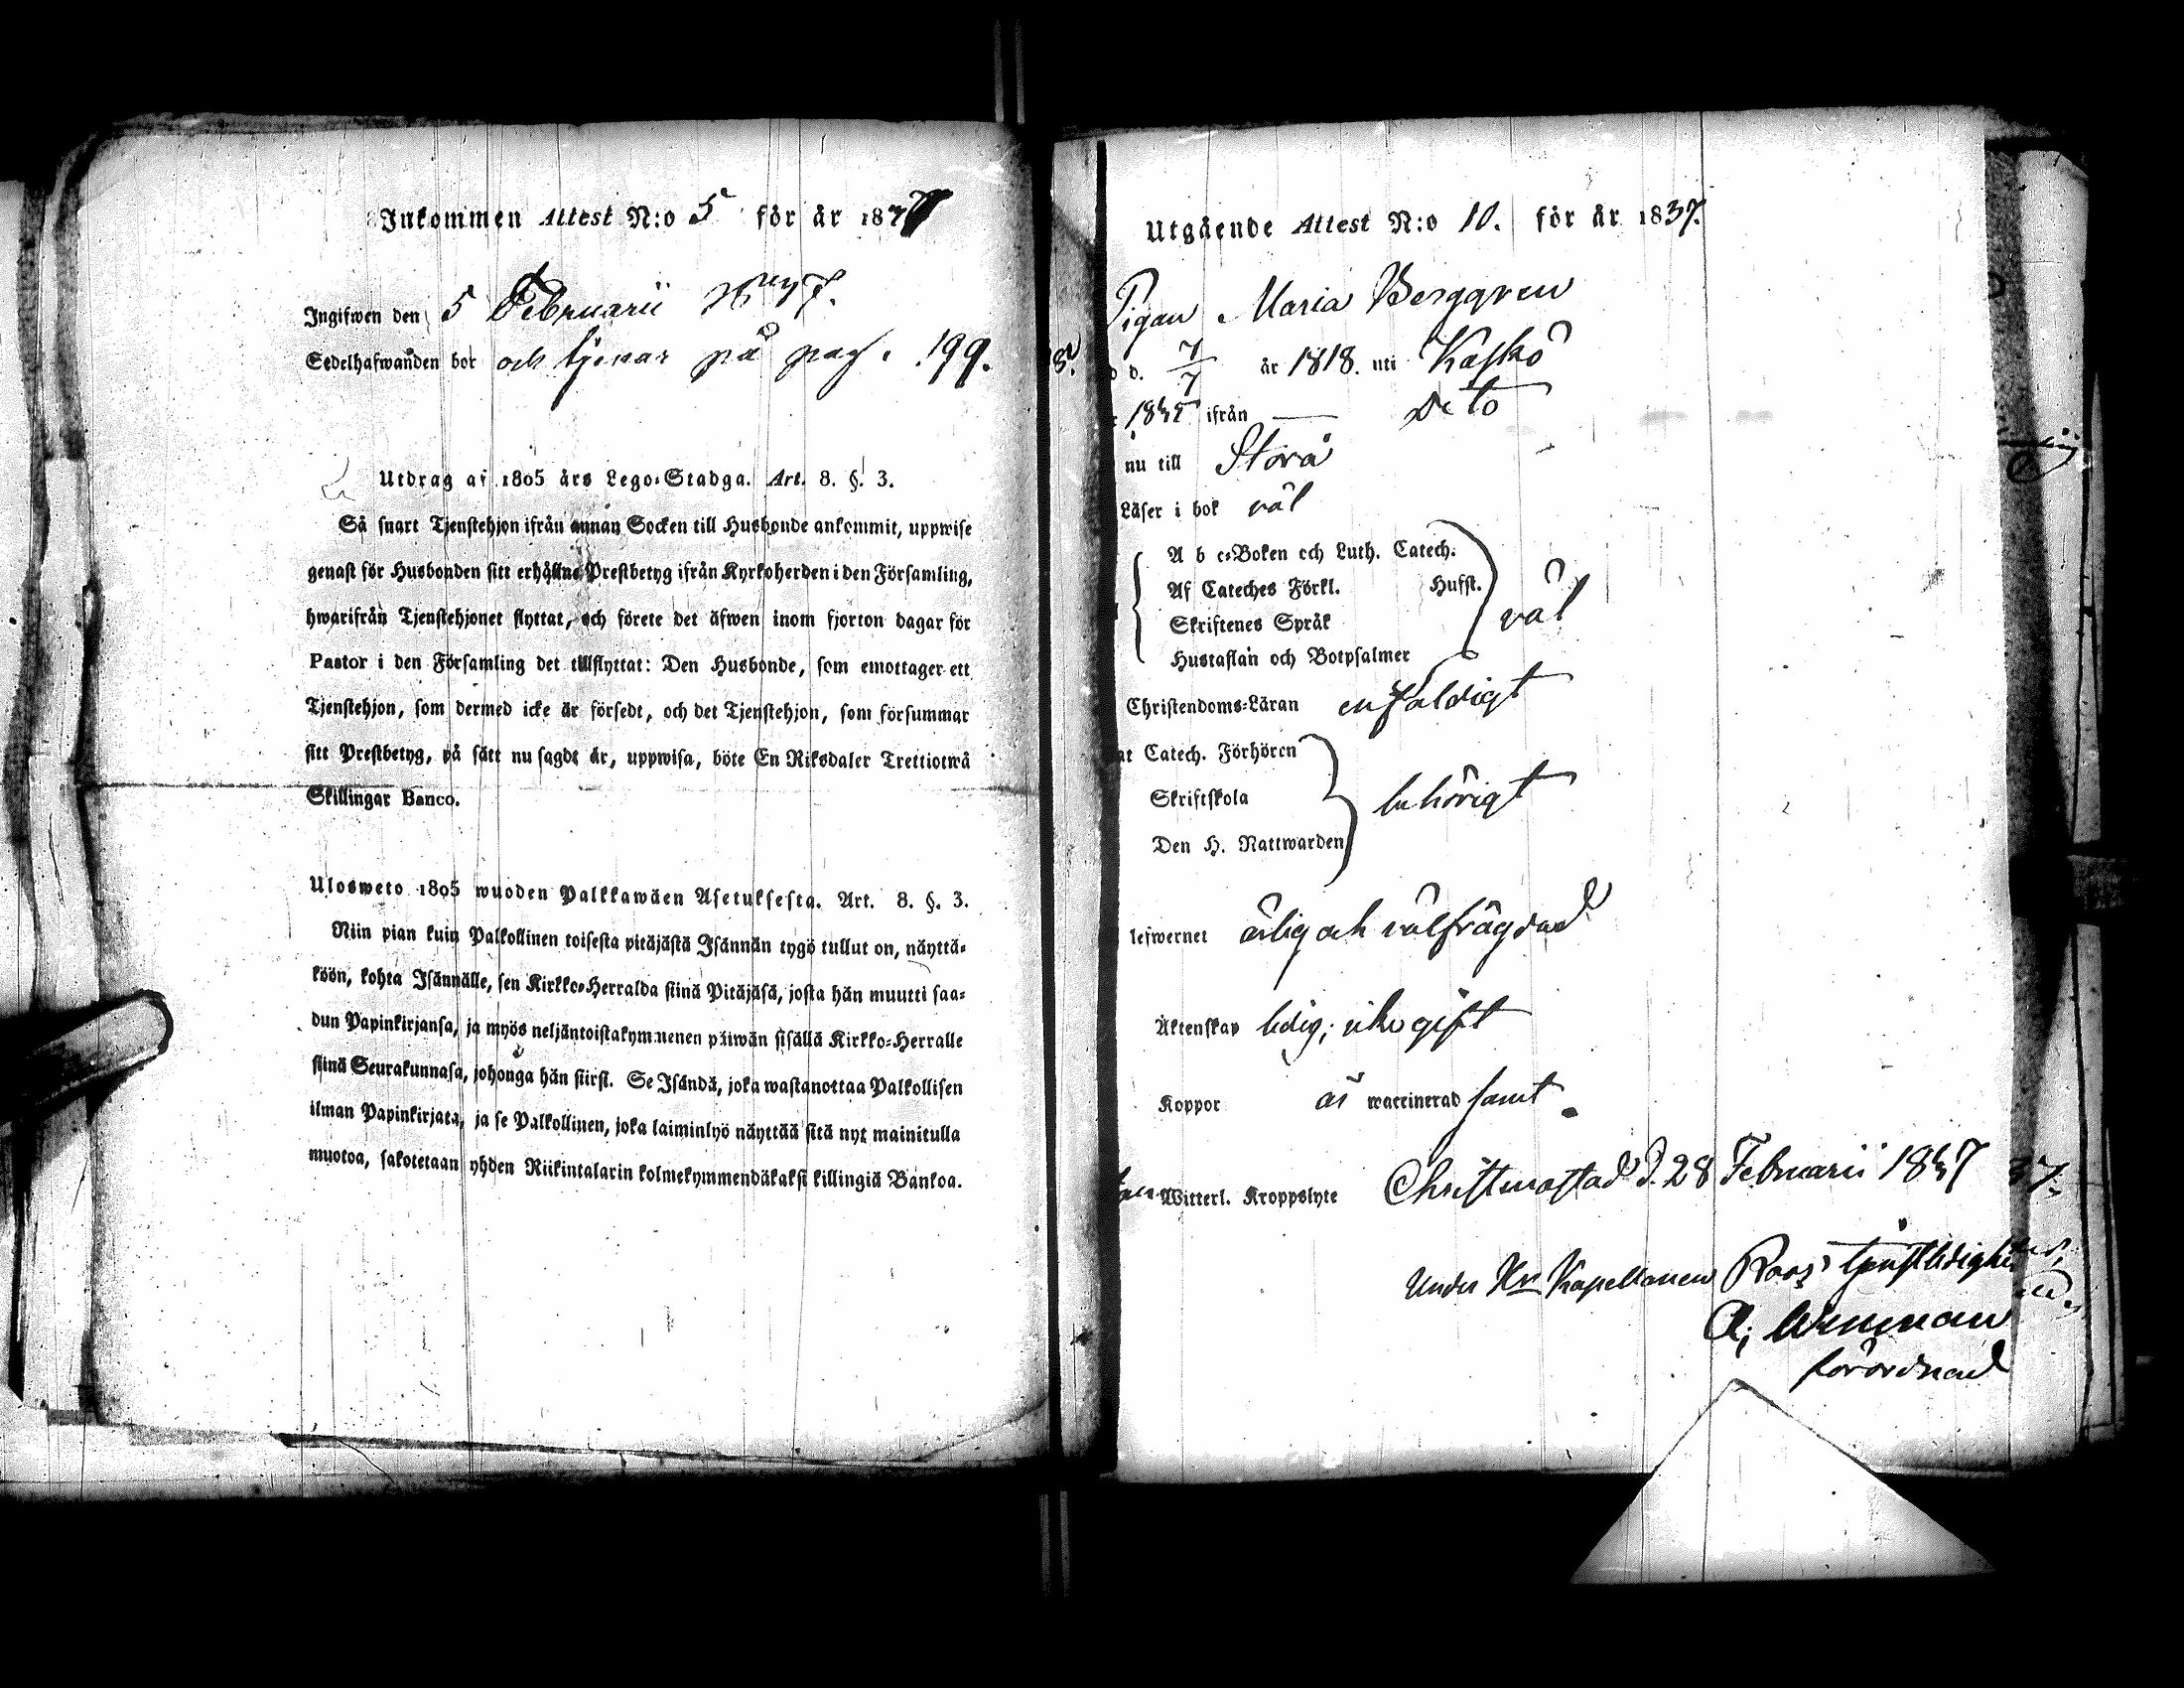 Inkommen Attest N:o 5 för år 1837
Ingifwen den 5 Februarii
Sedelhafwanden bor och tjenar på pag. 199.
Utdrag af 1805 års Lego-Stadga. Art. 8. §. 3.
Så snart Tjenstehjon ifrån annan Socken till Husbonde ankommit, uppwise
genast för Husbonden sitt erhållne Prestbetyg ifrån Kyrkoherden i den Församling,
hwarifrån Tjenstehjonet flyttat, och förete det äfwen inom fjorton dagar för
Pastor i den Församling det tillflyttat: Den Husbonde, som emottager ett
Tjenstehjon, som dermed icke är försedt, och det Tjenstehjon, som försummar
sitt Prestbetyg, på sätt nu sagdt är, uppwisa, böte En Riksdaler Trettiotwå
Skillingar Banco.
Ulosweto 1805 wuoden Palkkawäen Asetuksesta. Art. 8. §. 3.
Niin pian kuin Palkollinen toisesta pitäjästä Isännän tygö tullut on, näyttä-
köön, kohta Isännälle, sen Kirkko-Herralda siinä Pitäjäsä, josta hän muutti saa-
dun Papinkirjansa, ja myös neljäntoistakymmenen päiwän sisällä Kirkko-Herralle
siinä Seurakunnasa, johonga hän siirsi. Se Isändä, joka wastanottaa Palkollisen
ilman Papinkirjata, ja se Palkollinen, joka laiminlyö näyttää sitä nyt mainitulla
muotoa, sakotetaan yhden Riikintalarin kolmekymmendäkaksi killingiä Bankoa.
Utgående Attest N:o 10. för år 1837.
Pigan Maria Berggren
d. 7/7 år 1818. uti Kaskö
ifrån — Dito
nu till Storå
Läser i bok väl
A b c-Boken och Luth. Catech.
Af Cateches Förkl. Husst.
Skriftenes Språk väl
Hustaflan och Botpsalmer
Christendoms-Läran enfaldigt
Catech. Förhören
Skriftskola behörigt
Den H. Nattwarden
lefwernet ärlig och välfrägdad
Äktenskap ledig; icke gift
Koppor är waccinerad samt
Witterl. Kroppslyte Christinæstad d. 28 Februarii 1837
Under Hr Kapellanen Roos' tjenstledighet
förordnad